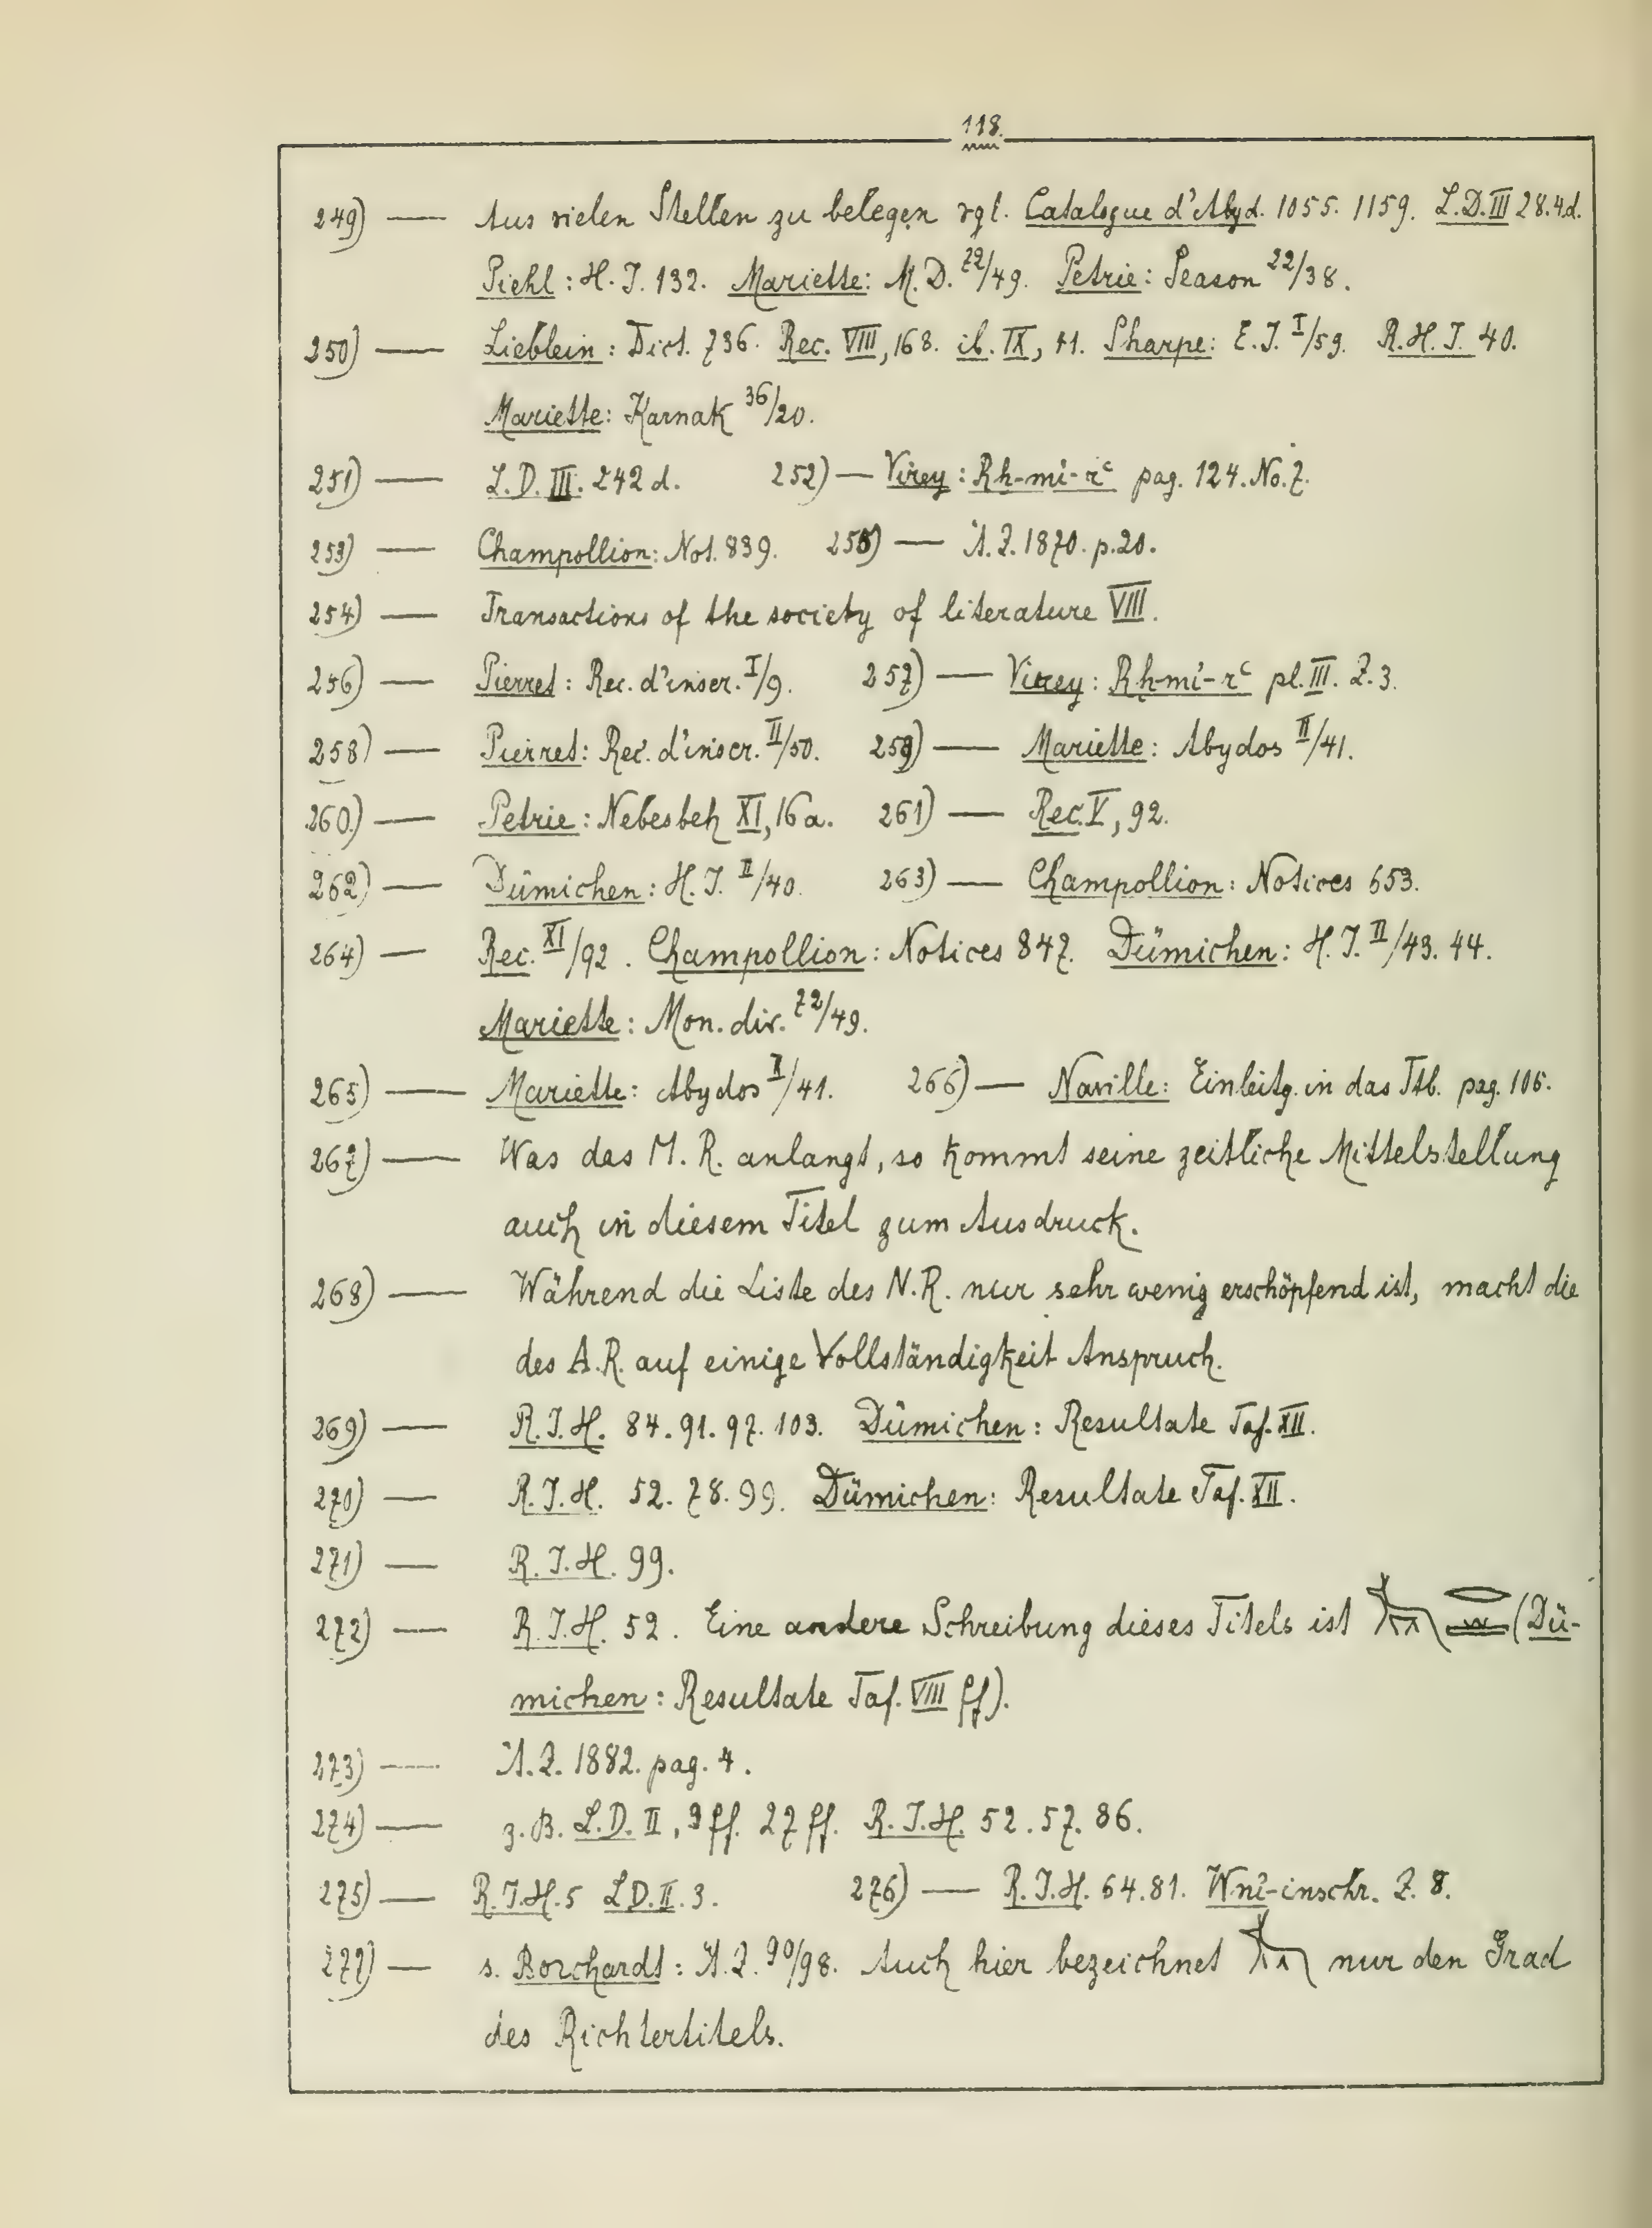 118.
249) — Aus vielen Stellen zu belegen vgl. Catalogue d'Abyd. 1055. 1159. L.D. III 28.4.d.
Piehl: H. I. 132. Mariette: M. D. 72/49. Petrie: Season 22/38.
250) — Lieblein: Dict. 736. Rec. VIII, 168. ib. IX, 41. Sharpe: E. I. I/59. R. H. I. 40.
Mariette: Karnak 36/20.
251) — L. D. III. 242 d. 252) — Virey: Rh-mi-rꜥ pag. 124. No. 7.
253) — Champollion: Not. 839. 255) — Ä. Z. 1870. p. 20.
254) — Transactions of the society of literature VIII.
256) — Pierret: Rec. d'inscr. I/9. 257) — Virey: Rh-mi-rꜥ pl. III. Z. 3.
258) — Pierret: Rec. d'inscr. II/50. 259) — Mariette: Abydos II/41.
260.) — Petrie: Nebesheh XI, 16a. 261) — Rec. V, 92.
262) — Dümichen: H. I. II/40. 263) — Champollion: Notices 653.
264) — Rec. XI/92. Champollion: Notices 847. Dümichen: H. I. II/43. 44.
Mariette: Mon. div. 72/49.
265) — Mariette: Abydos II/41. 266) — Naville: Einleitg. in das Ttb. pag. 106.
267) — Was das M. R. anlangt, so kommt seine zeitliche Mittelstellung
auch in diesem Titel zum Ausdruck.
268) — Während die Liste des N. R. nur sehr wenig erschöpfend ist, macht die
des A. R. auf einige Vollständigkeit Anspruch.
269) — R. I. H. 84. 91. 97. 103. Dümichen: Resultate Taf. XII.
270) — R. I. H. 52. 78. 99. Dümichen: Resultate Taf. XII.
271) — R. I. H. 99.
272) — R. I. H. 52. Eine andere Schreibung dieses Titels ist (Dü-
michen: Resultate Taf. VIII ff).
273) — Ä. Z. 1882. pag. 4.
274) — z. B. L. D. II, 9 ff. 27 ff. R. I. H. 52. 57. 86.
275) — R. I. H. 5 L D. II. 3. 276) — R. I. H. 64. 81. Wni-inschr. Z. 8.
277) — s. Borchardt: Ä. Z. 90/98. Auch hier bezeichnet nur den Grad
des Richtertitels.